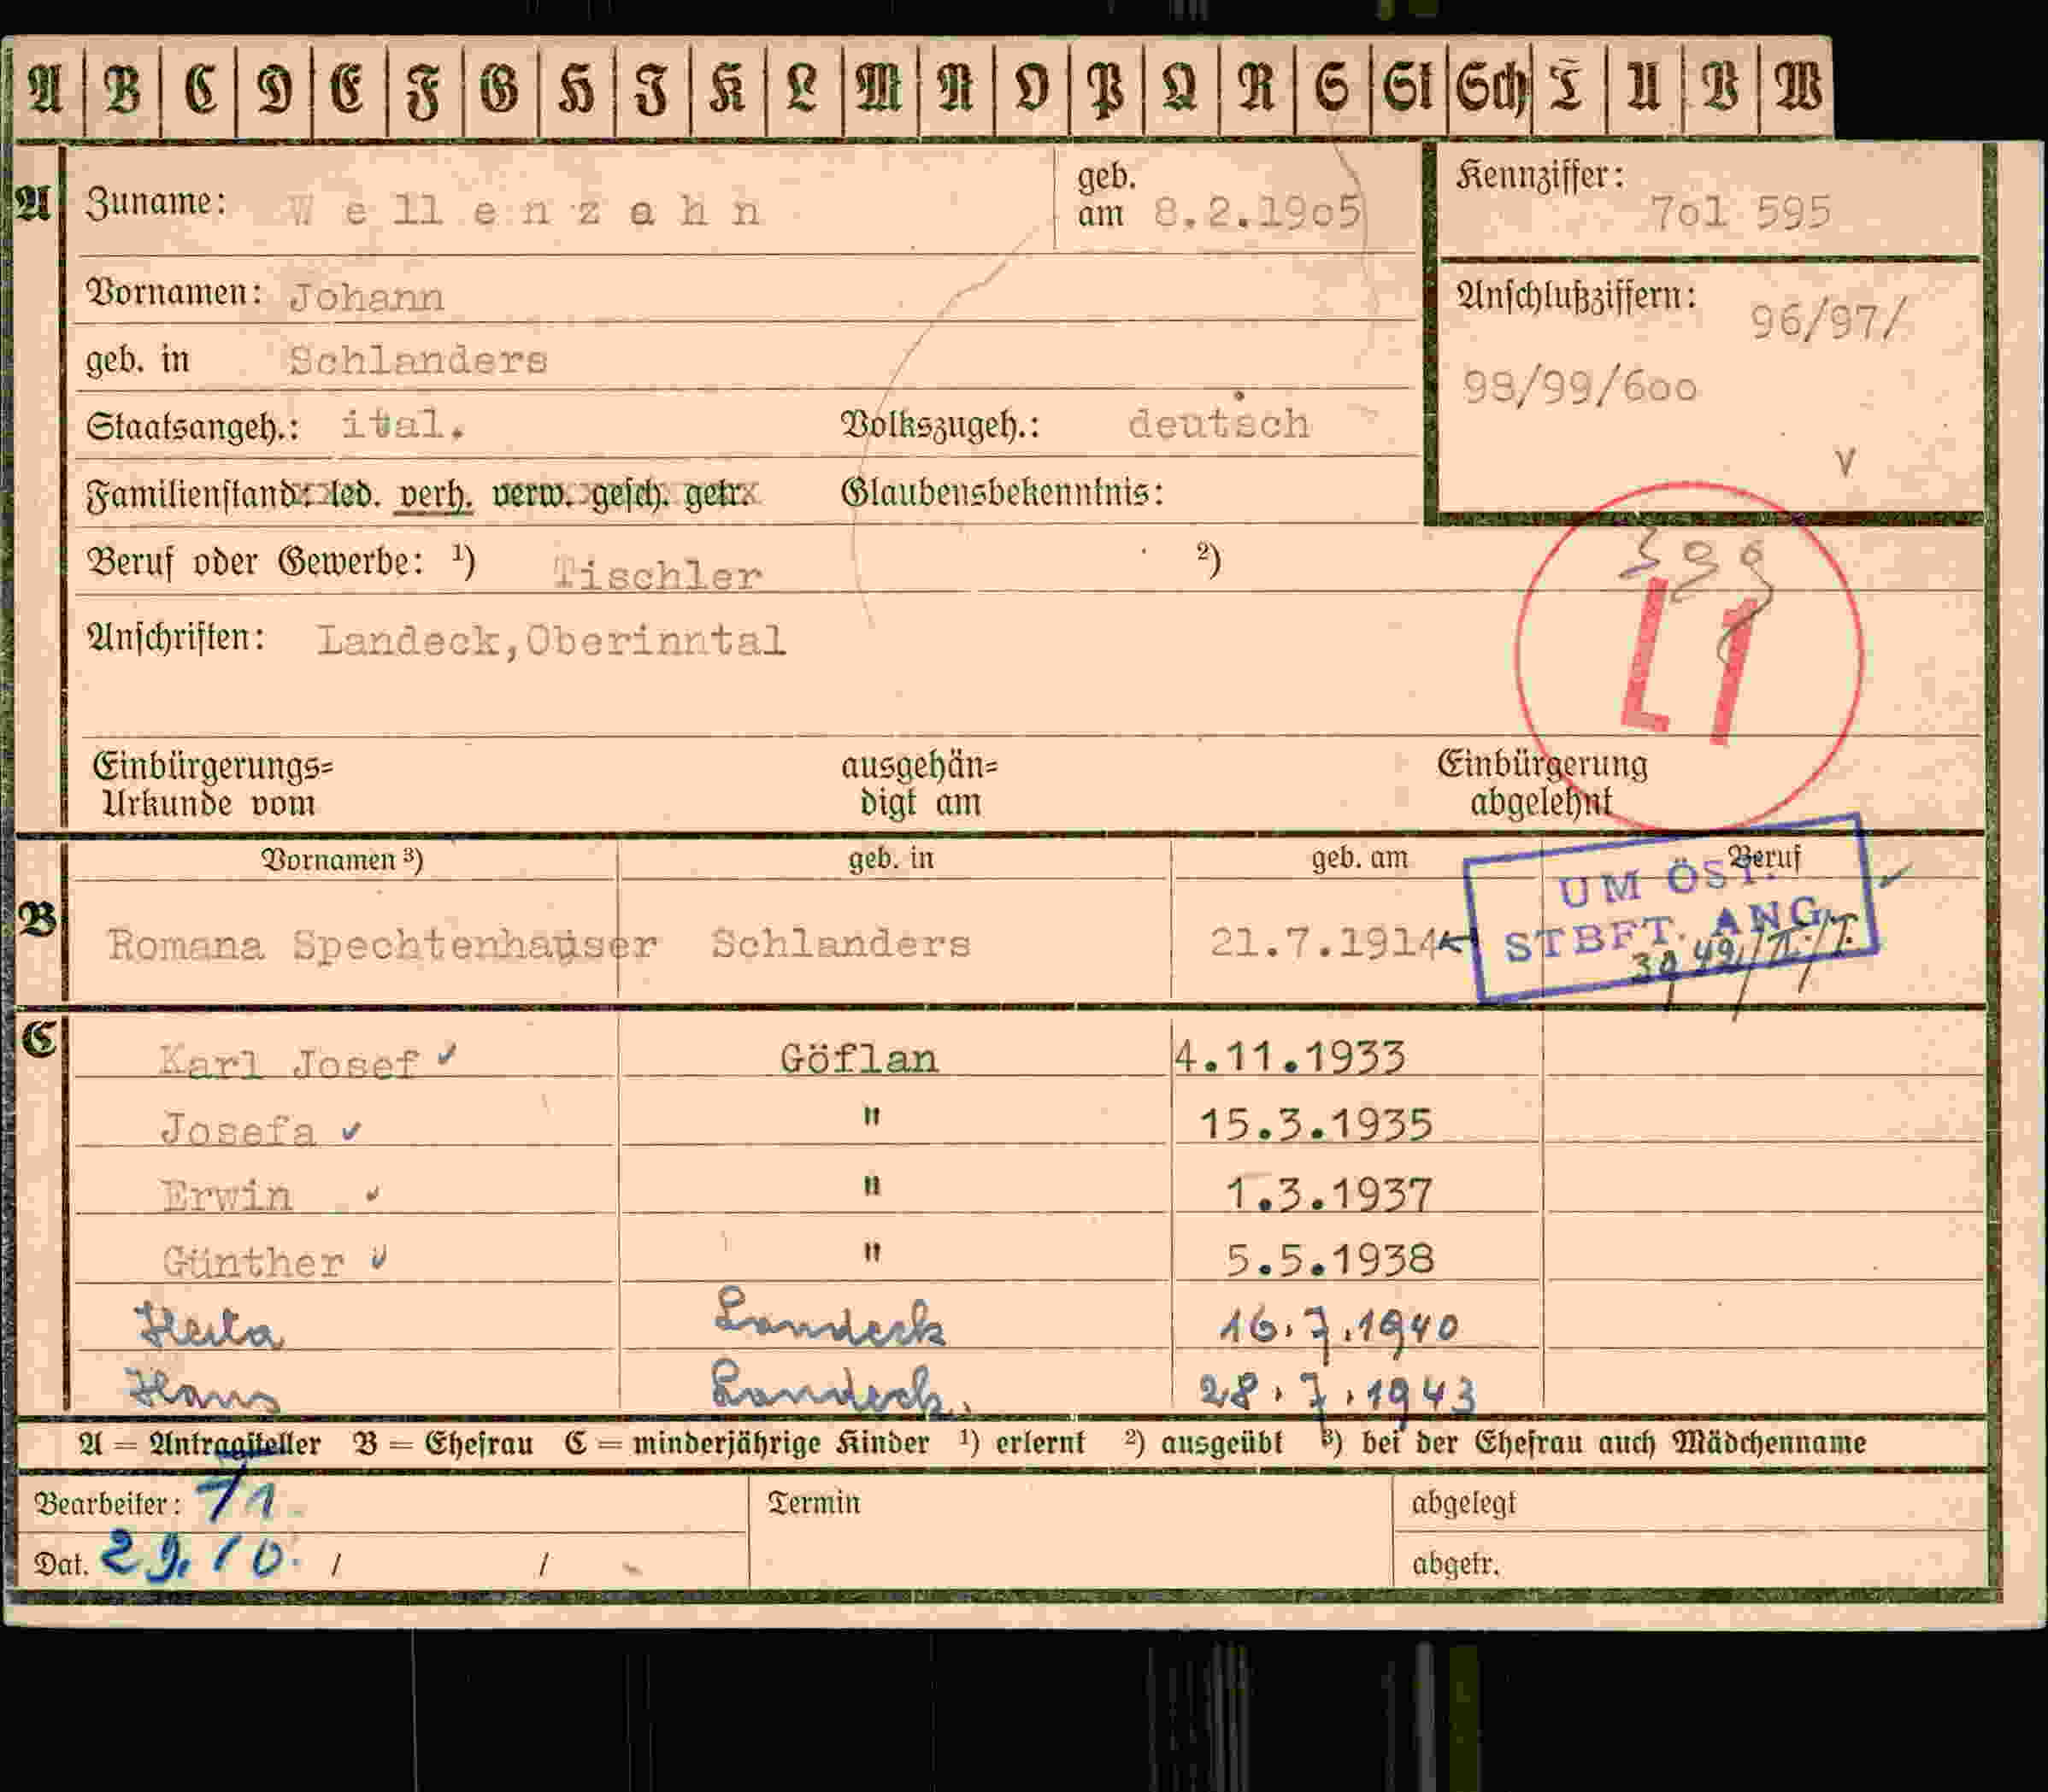 A B C D E F G H I K L M N O P Q R S St Sch T U V W
A Zuname: Wellenzahn geb. am 8.2.19o5 Kennziffer: 7o1 595
Vornamen: Johann Anschlußziffern: 96/97/
geb. in Schlanders 98/99/6oo
Staatsangeh.: ital. Volkszugeh.: deutsch
V
Familienstand: led. verh. verw. gesch. getr. Glaubensbekenntnis:
Beruf oder Gewerbe: 1) Tischler 2)
L1
Anschriften: Landeck,Oberinntal
Einbürgerungs=
Urkunde vom
ausgehän=
digt am
Einbürgerung
abgelehnt
B Vornamen 3) geb. in geb. am Beruf
UM ÖST.
STBFT. ANG.
Romana Spechtenhauser Schlanders 21.7.1914
C Karl Josef Göflan 4.11.1933
Josefa " 15.3.1935
Erwin " 1.3.1937
Günther " 5.5.1938
Herta Landeck 16.7.1940
Hans Landeck. 28.7.1943
A = Antragsteller B = Ehefrau C = minderjährige Kinder 1) erlernt 2) ausgeübt 3) bei der Ehefrau auch Mädchenname
Bearbeiter: 71 Termin abgelegt
Dat. 29.10. / / abgetr.